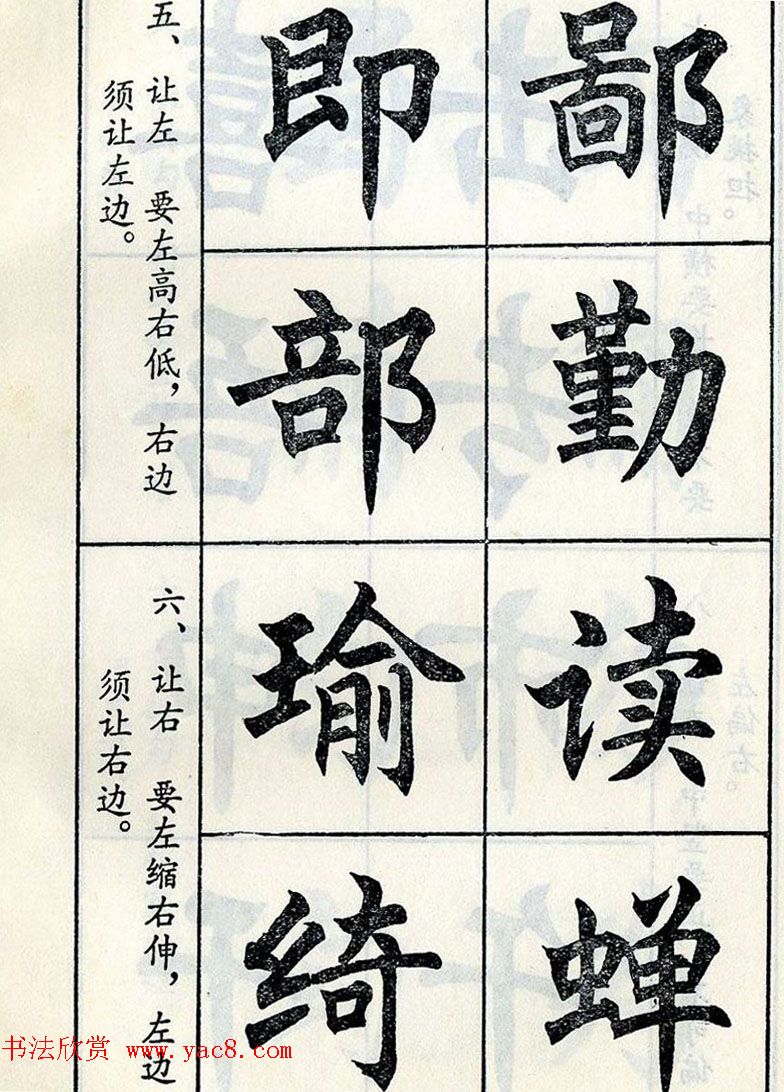 五、让左 要左高右低，右边
须让左边。
鄙 即
勤 部
六、让右 要左缩右伸，左边
须让右边。
读 瑜
蝉 绮
书法欣赏 www.yac8.com